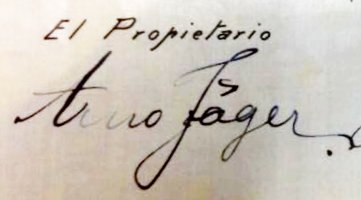 El Propietario
Arno Jäger